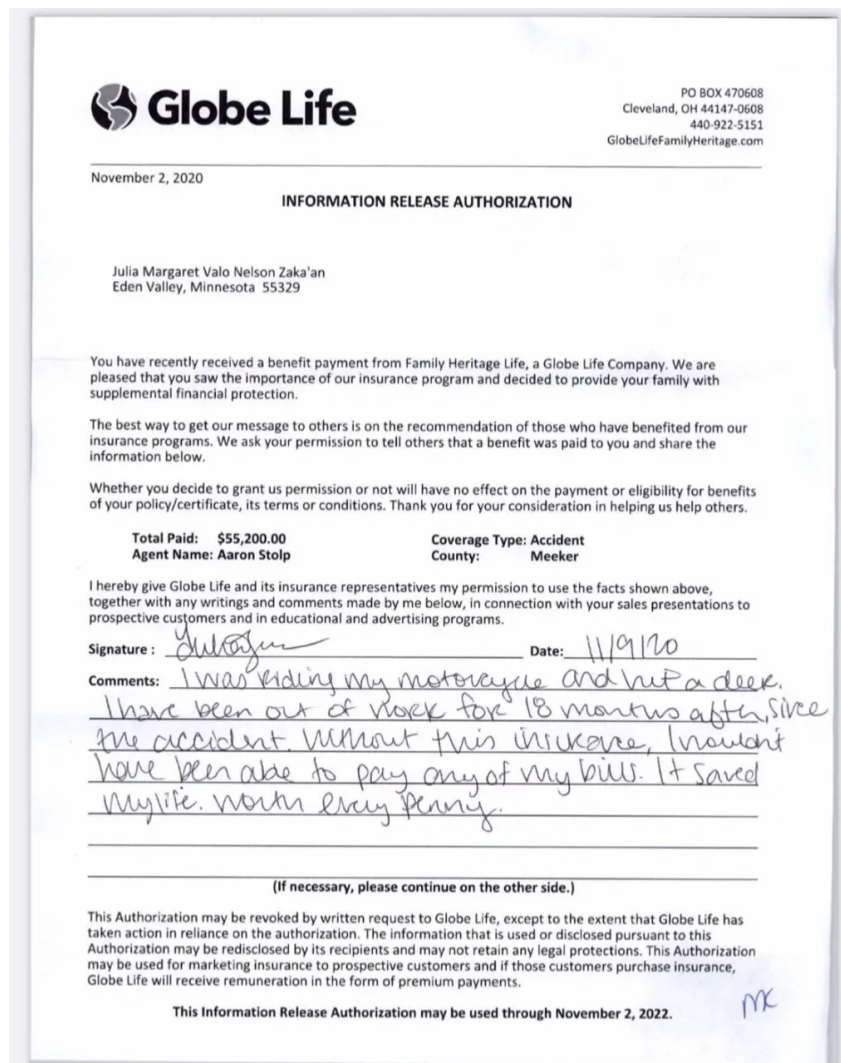 Globe Life
PO BOX 470608
Cleveland, OH 44147-0608
440-922-5151
GlobeLifeFamilyHeritage.com
November 2, 2020
INFORMATION RELEASE AUTHORIZATION
Julia Margaret Valo Nelson Zaka'an
Eden Valley, Minnesota 55329
You have recently received a benefit payment from Family Heritage Life, a Globe Life Company. We are
pleased that you saw the importance of our insurance program and decided to provide your family with
supplemental financial protection.
The best way to get our message to others is on the recommendation of those who have benefited from our
insurance programs. We ask your permission to tell others that a benefit was paid to you and share the
information below.
Whether you decide to grant us permission or not will have no effect on the payment or eligibility for benefits
of your policy/certificate, its terms or conditions. Thank you for your consideration in helping us help others.
Total Paid: $55,200.00 Coverage Type: Accident
Agent Name: Aaron Stolp County: Meeker
I hereby give Globe Life and its insurance representatives my permission to use the facts shown above,
together with any writings and comments made by me below, in connection with your sales presentations to
prospective customers and in educational and advertising programs.
Signature : Date: 11/9/20
Comments: I was riding my motorcycle and hit a deer.
I have been out of work for 18 months after, since
the accident. Without this insurance, I wouldn't
have been able to pay any of my bills. It saved
my life. Worth every penny.
(If necessary, please continue on the other side.)
This Authorization may be revoked by written request to Globe Life, except to the extent that Globe Life has
taken action in reliance on the authorization. The information that is used or disclosed pursuant to this
Authorization may be redisclosed by its recipients and may not retain any legal protections. This Authorization
may be used for marketing insurance to prospective customers and if those customers purchase insurance,
Globe Life will receive remuneration in the form of premium payments.
MK
This Information Release Authorization may be used through November 2, 2022.